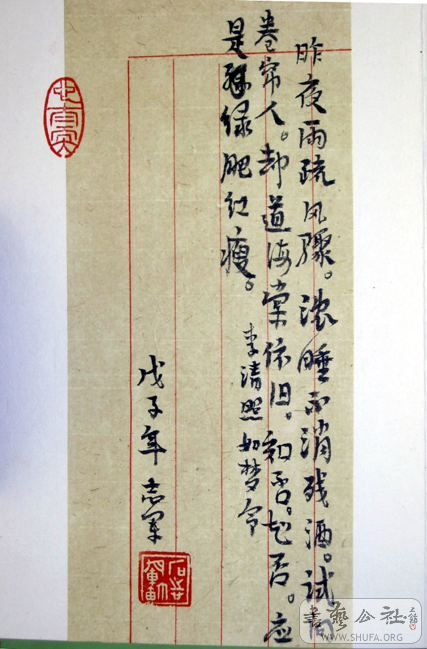 昨夜雨疏风骤。浓睡不消残酒。试问
卷帘人。却道海棠依旧。知否。知否。应
是绿肥红瘦。
李清照 如梦令
戊子年 志军
書藝公社
WWW.SHUFA.ORG